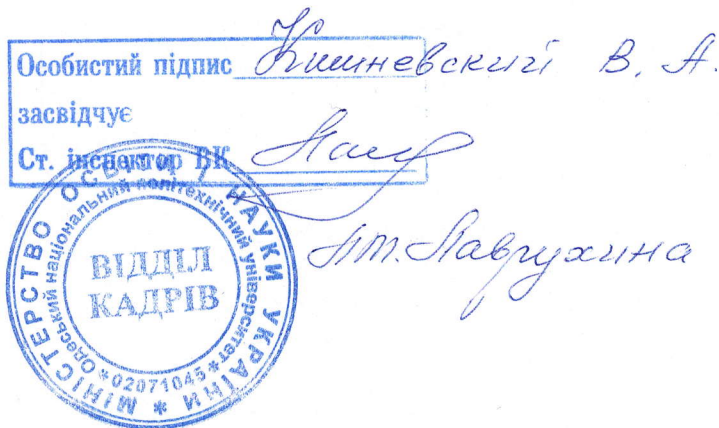 Особистий підпис Кишневский В. А.
засвідчує
Ст. інспектор ВК
Лаврухина
МІНІСТЕРСТВО ОСВІТИ І НАУКИ УКРАЇНИ *
Одеський національний політехнічний університет * 02071045 *
ВІДДІЛ
КАДРІВ